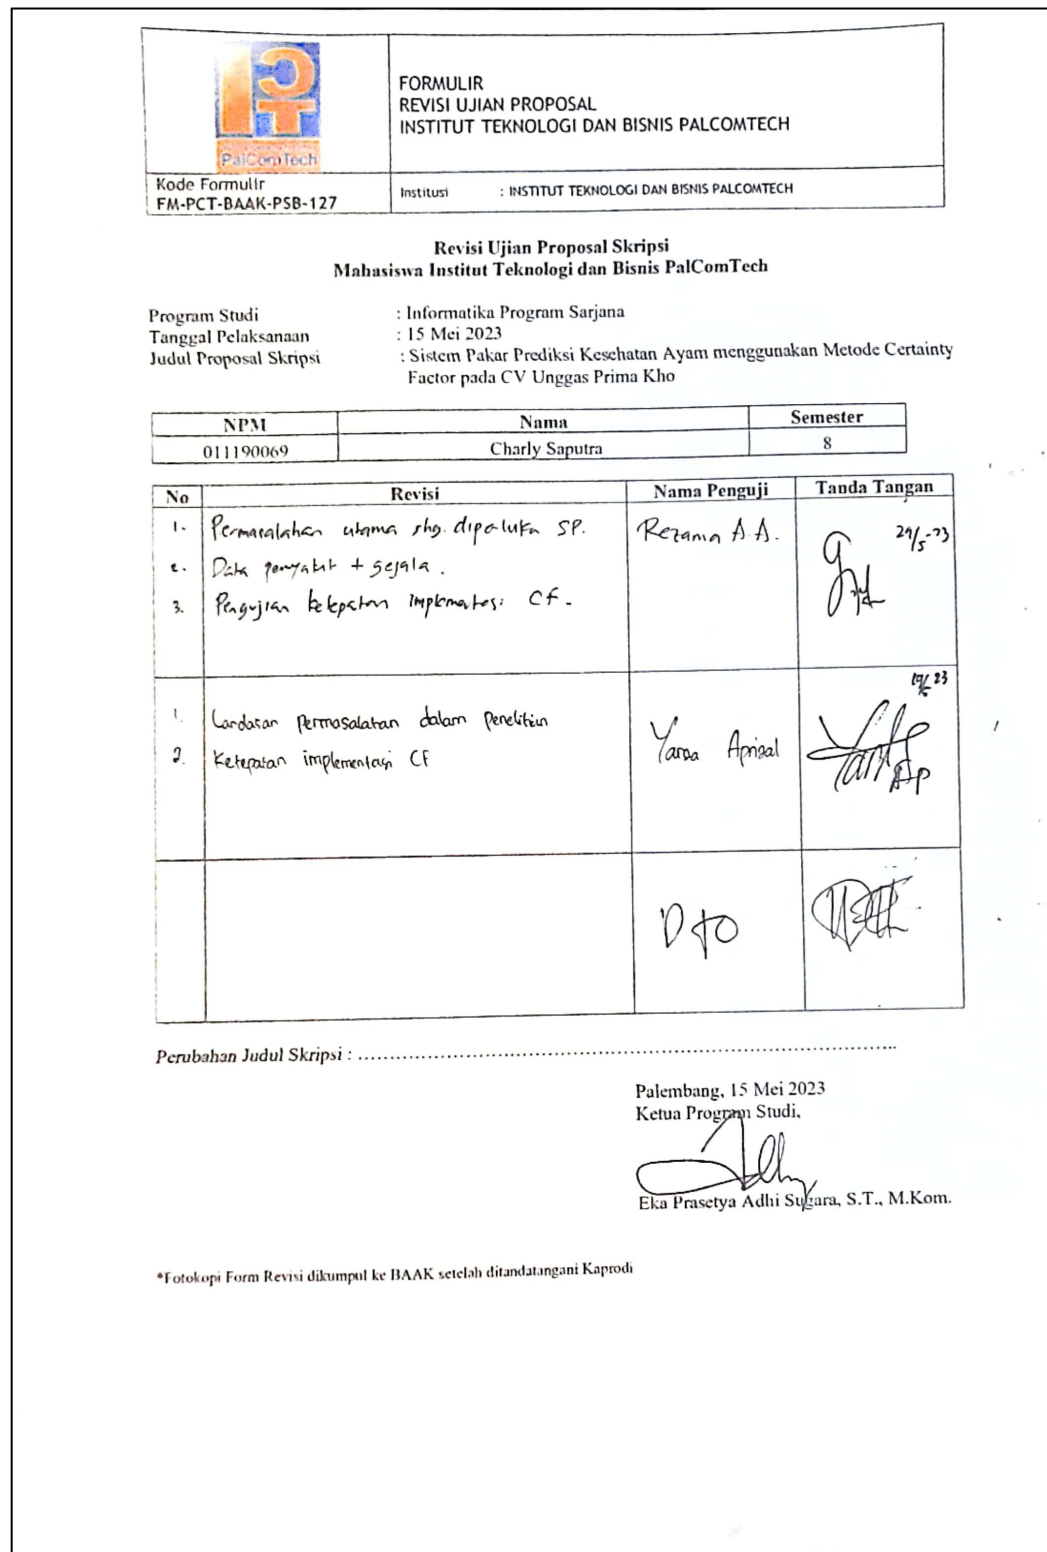 PalComTech
FORMULIR
REVISI UJIAN PROPOSAL
INSTITUT TEKNOLOGI DAN BISNIS PALCOMTECH
Kode Formulir
FM-PCT-BAAK-PSB-127
Institusi : INSTITUT TEKNOLOGI DAN BISNIS PALCOMTECH
Revisi Ujian Proposal Skripsi
Mahasiswa Institut Teknologi dan Bisnis PalComTech
Program Studi : Informatika Program Sarjana
Tanggal Pelaksanaan : 15 Mei 2023
Judul Proposal Skripsi : Sistem Pakar Prediksi Kesehatan Ayam menggunakan Metode Certainty
Factor pada CV Unggas Prima Kho
NPM Nama Semester
011190069 Charly Saputra 8
No Revisi Nama Penguji Tanda Tangan
1. Permasalahan utama shg. diperlukan SP. Rezania A.A.
2. Data penyakit + gejala.
3. Pengujian ketepatan implementasi CF.
1. Landasan permasalahan dalam penelitian
Yarza Aprizal
2. Ketepatan implementasi CF
Perubahan Judul Skripsi : ....................................................................................
Palembang, 15 Mei 2023
Ketua Program Studi,
Eka Prasetya Adhi Sugara, S.T., M.Kom.
*Fotokopi Form Revisi dikumpul ke BAAK setelah ditandatangani Kaprodi